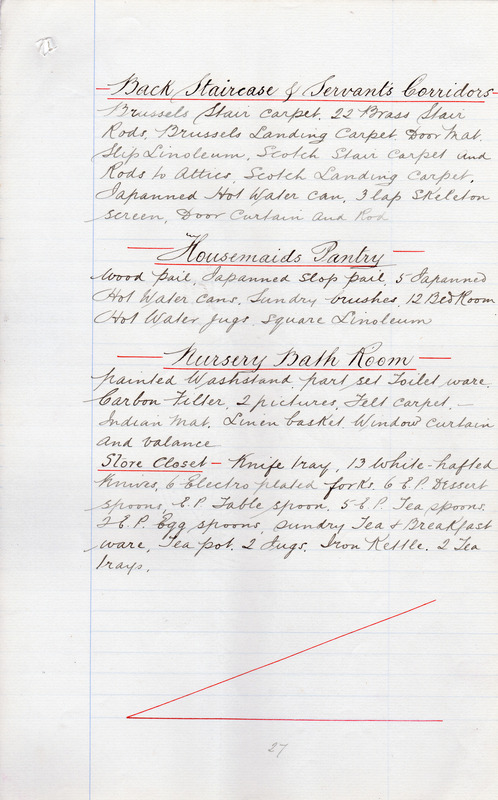 Back Staircase & Servant's Corridors
Brussels Stair Carpet, 22 Brass Stair
Rods, Brussels Landing Carpet, Door Mat.
Slip Linoleum, Scotch Stair Carpet and
Rods to Attics, Scotch Landing Carpet,
Japanned Hot Water Can, 3 lap Skeleton
screen, Door Curtain and Rod
Housemaids Pantry
Wood Pail, Japanned Slop Pail, 5 Japanned
Hot Water Cans, Sundry brushes, 12 Bed Room
Hot Water Jugs, Square Linoleum
Nursery Bath Room
painted Washstand, part set Toilet ware,
Carbon Filter, 2 pictures, Felt Carpet. –
Indian Mat, Linen basket, Window Curtain
and valance
Store Closet – Knife tray, 13 White-hafted
Knives, 6 Electro plated forks, 6 E.P. Dessert
spoons, E.P. Table spoon, 5 E.P. Tea spoons.
2 E.P. Egg spoons, Sundry Tea & Breakfast
ware, Tea pot, 2 Jugs, Iron Kettle. 2 Tea
trays.
27